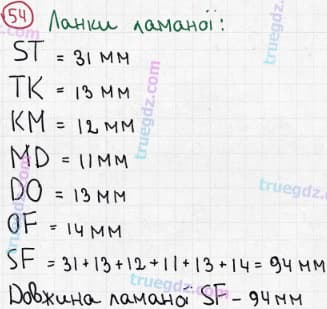 54 Ланки ламаної:
ST = 31 мм
TK = 13 мм
KM = 12 мм
MD = 11 мм
DO = 13 мм
OF = 14 мм
SF = 31 + 13 + 12 + 11 + 13 + 14 = 94 мм
Довжина ламаної SF - 94 мм
truegdz.com
truegdz.com
truegdz.com
truegdz.com
truegdz.com
truegdz.com